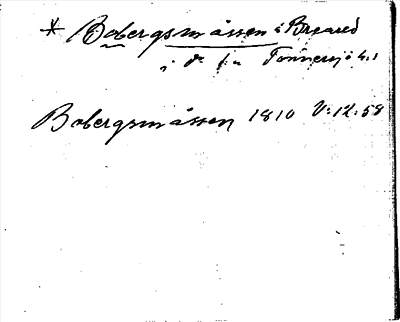 * Bobergsmåssen i Breared
i d:o f:n Tönnersjö h:d
Bobergsmåssen 1810 V:12:58